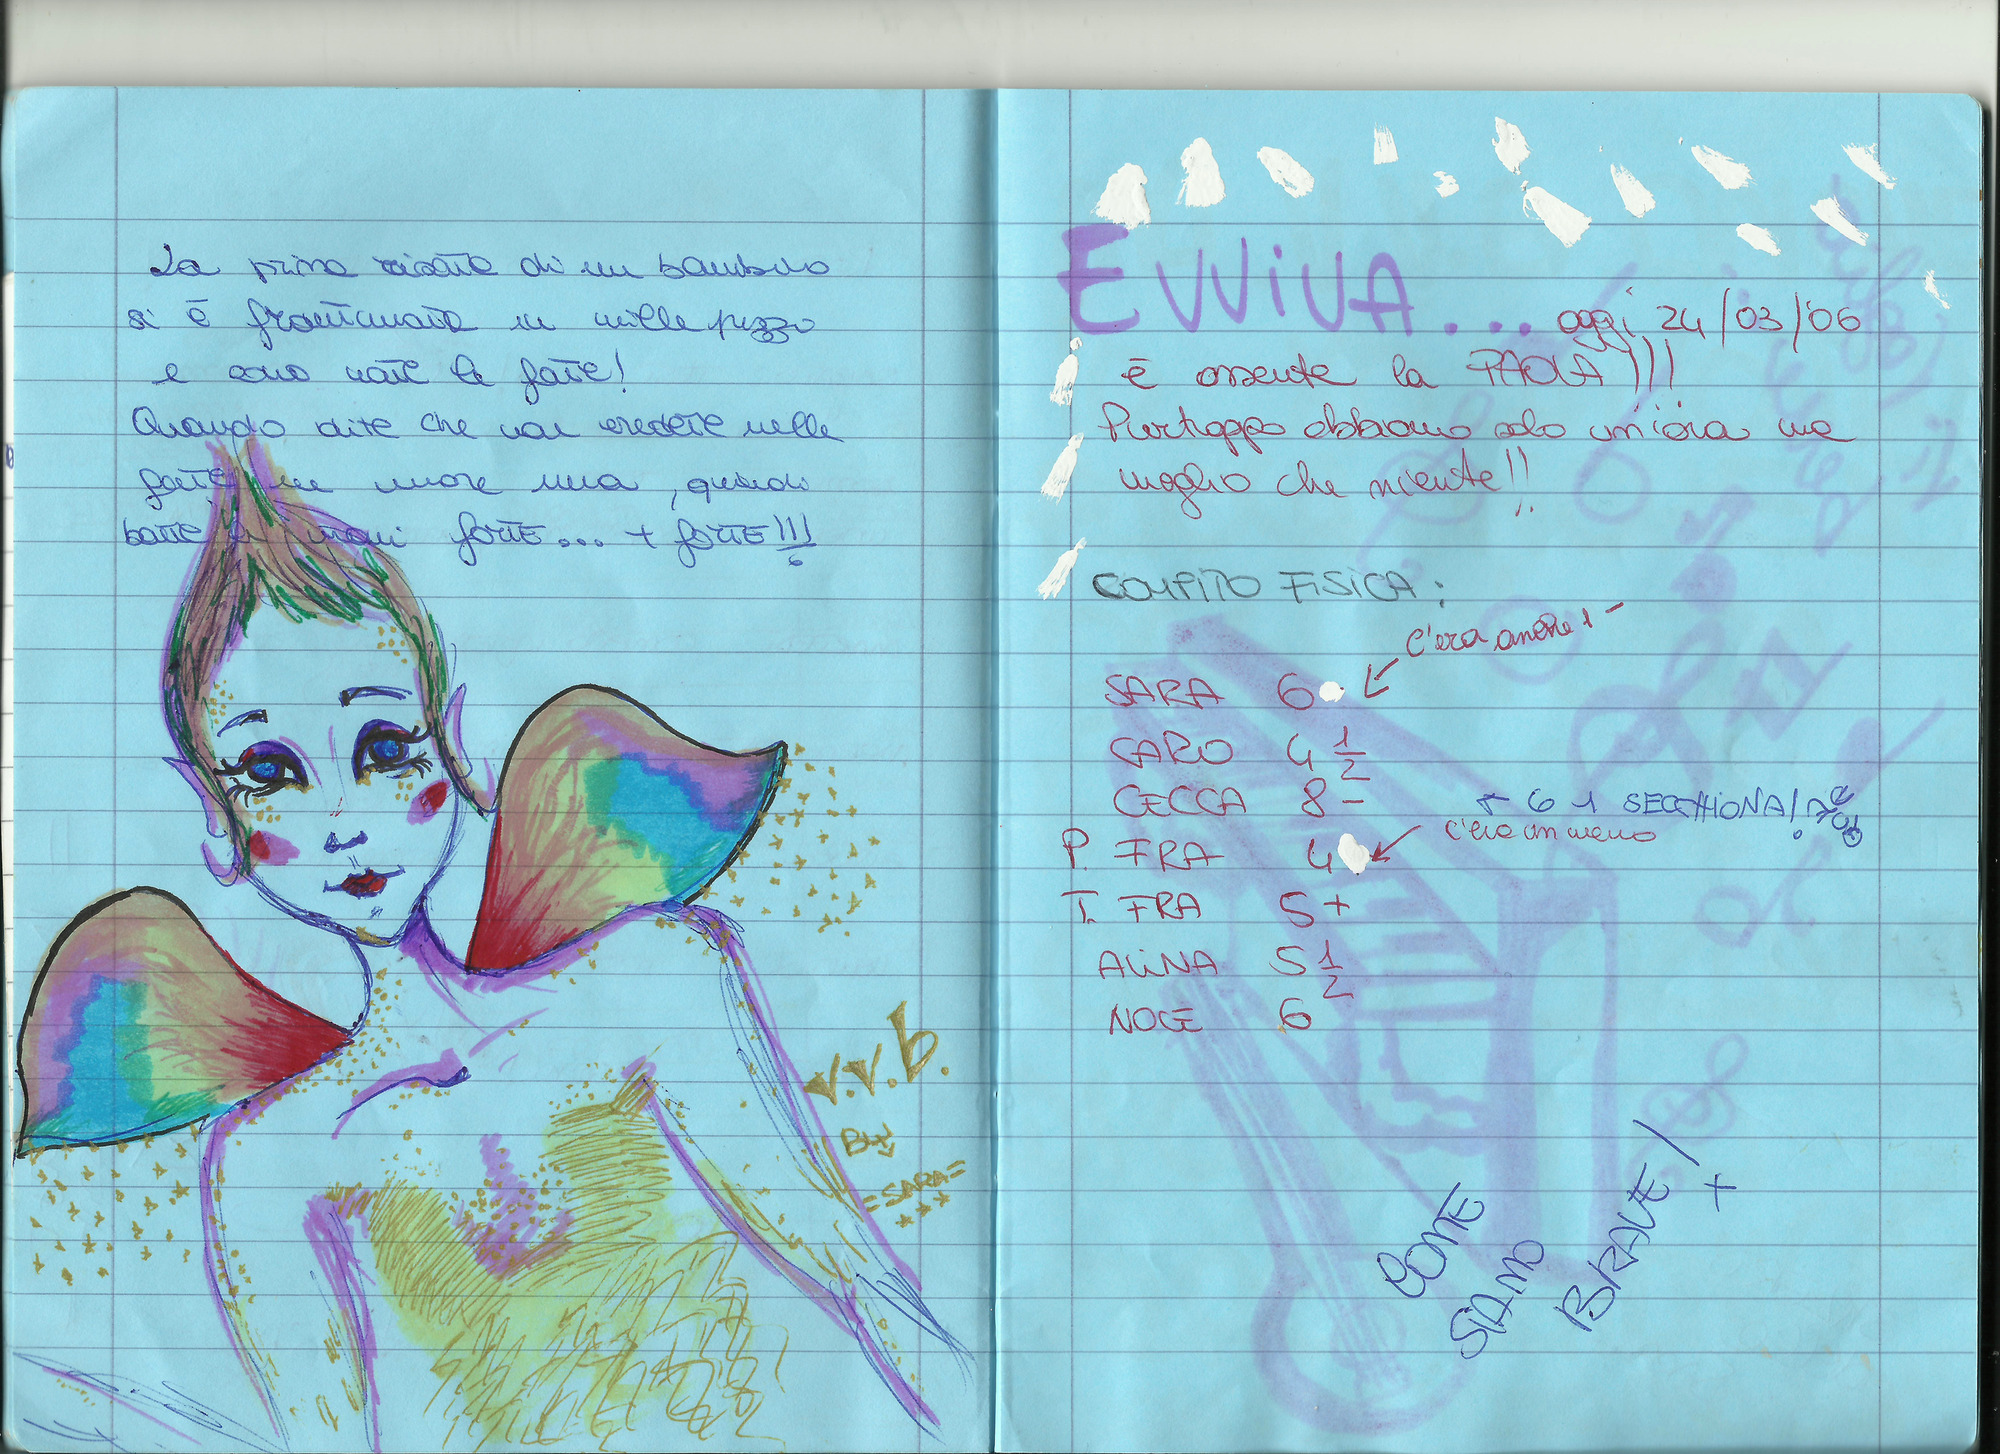 La prima risata di un bambino
si è frantumata in mille pezzo
e sono nate le fate!
Quando dite che non credete nelle
fate ne muore una, quindi
batte le mani forte... + forte!!!
v.v.b.
By
=SARA=
EVVIVA... oggi 24/03/'06
è assente la PAOLA!!!
Purtroppo abbiamo solo un'ora ma
meglio che niente!!
COMPITO FISICA:
C'era anche 1 -
SARA 6
CARO 4 1/2
CECCA 8 -
6 1 SECCHIONA!
P. FRA 4
c'era un meno
T. FRA 5+
ALINA 5 1/2
NOCE 6
COME
SIAMO
BRAVE!
+